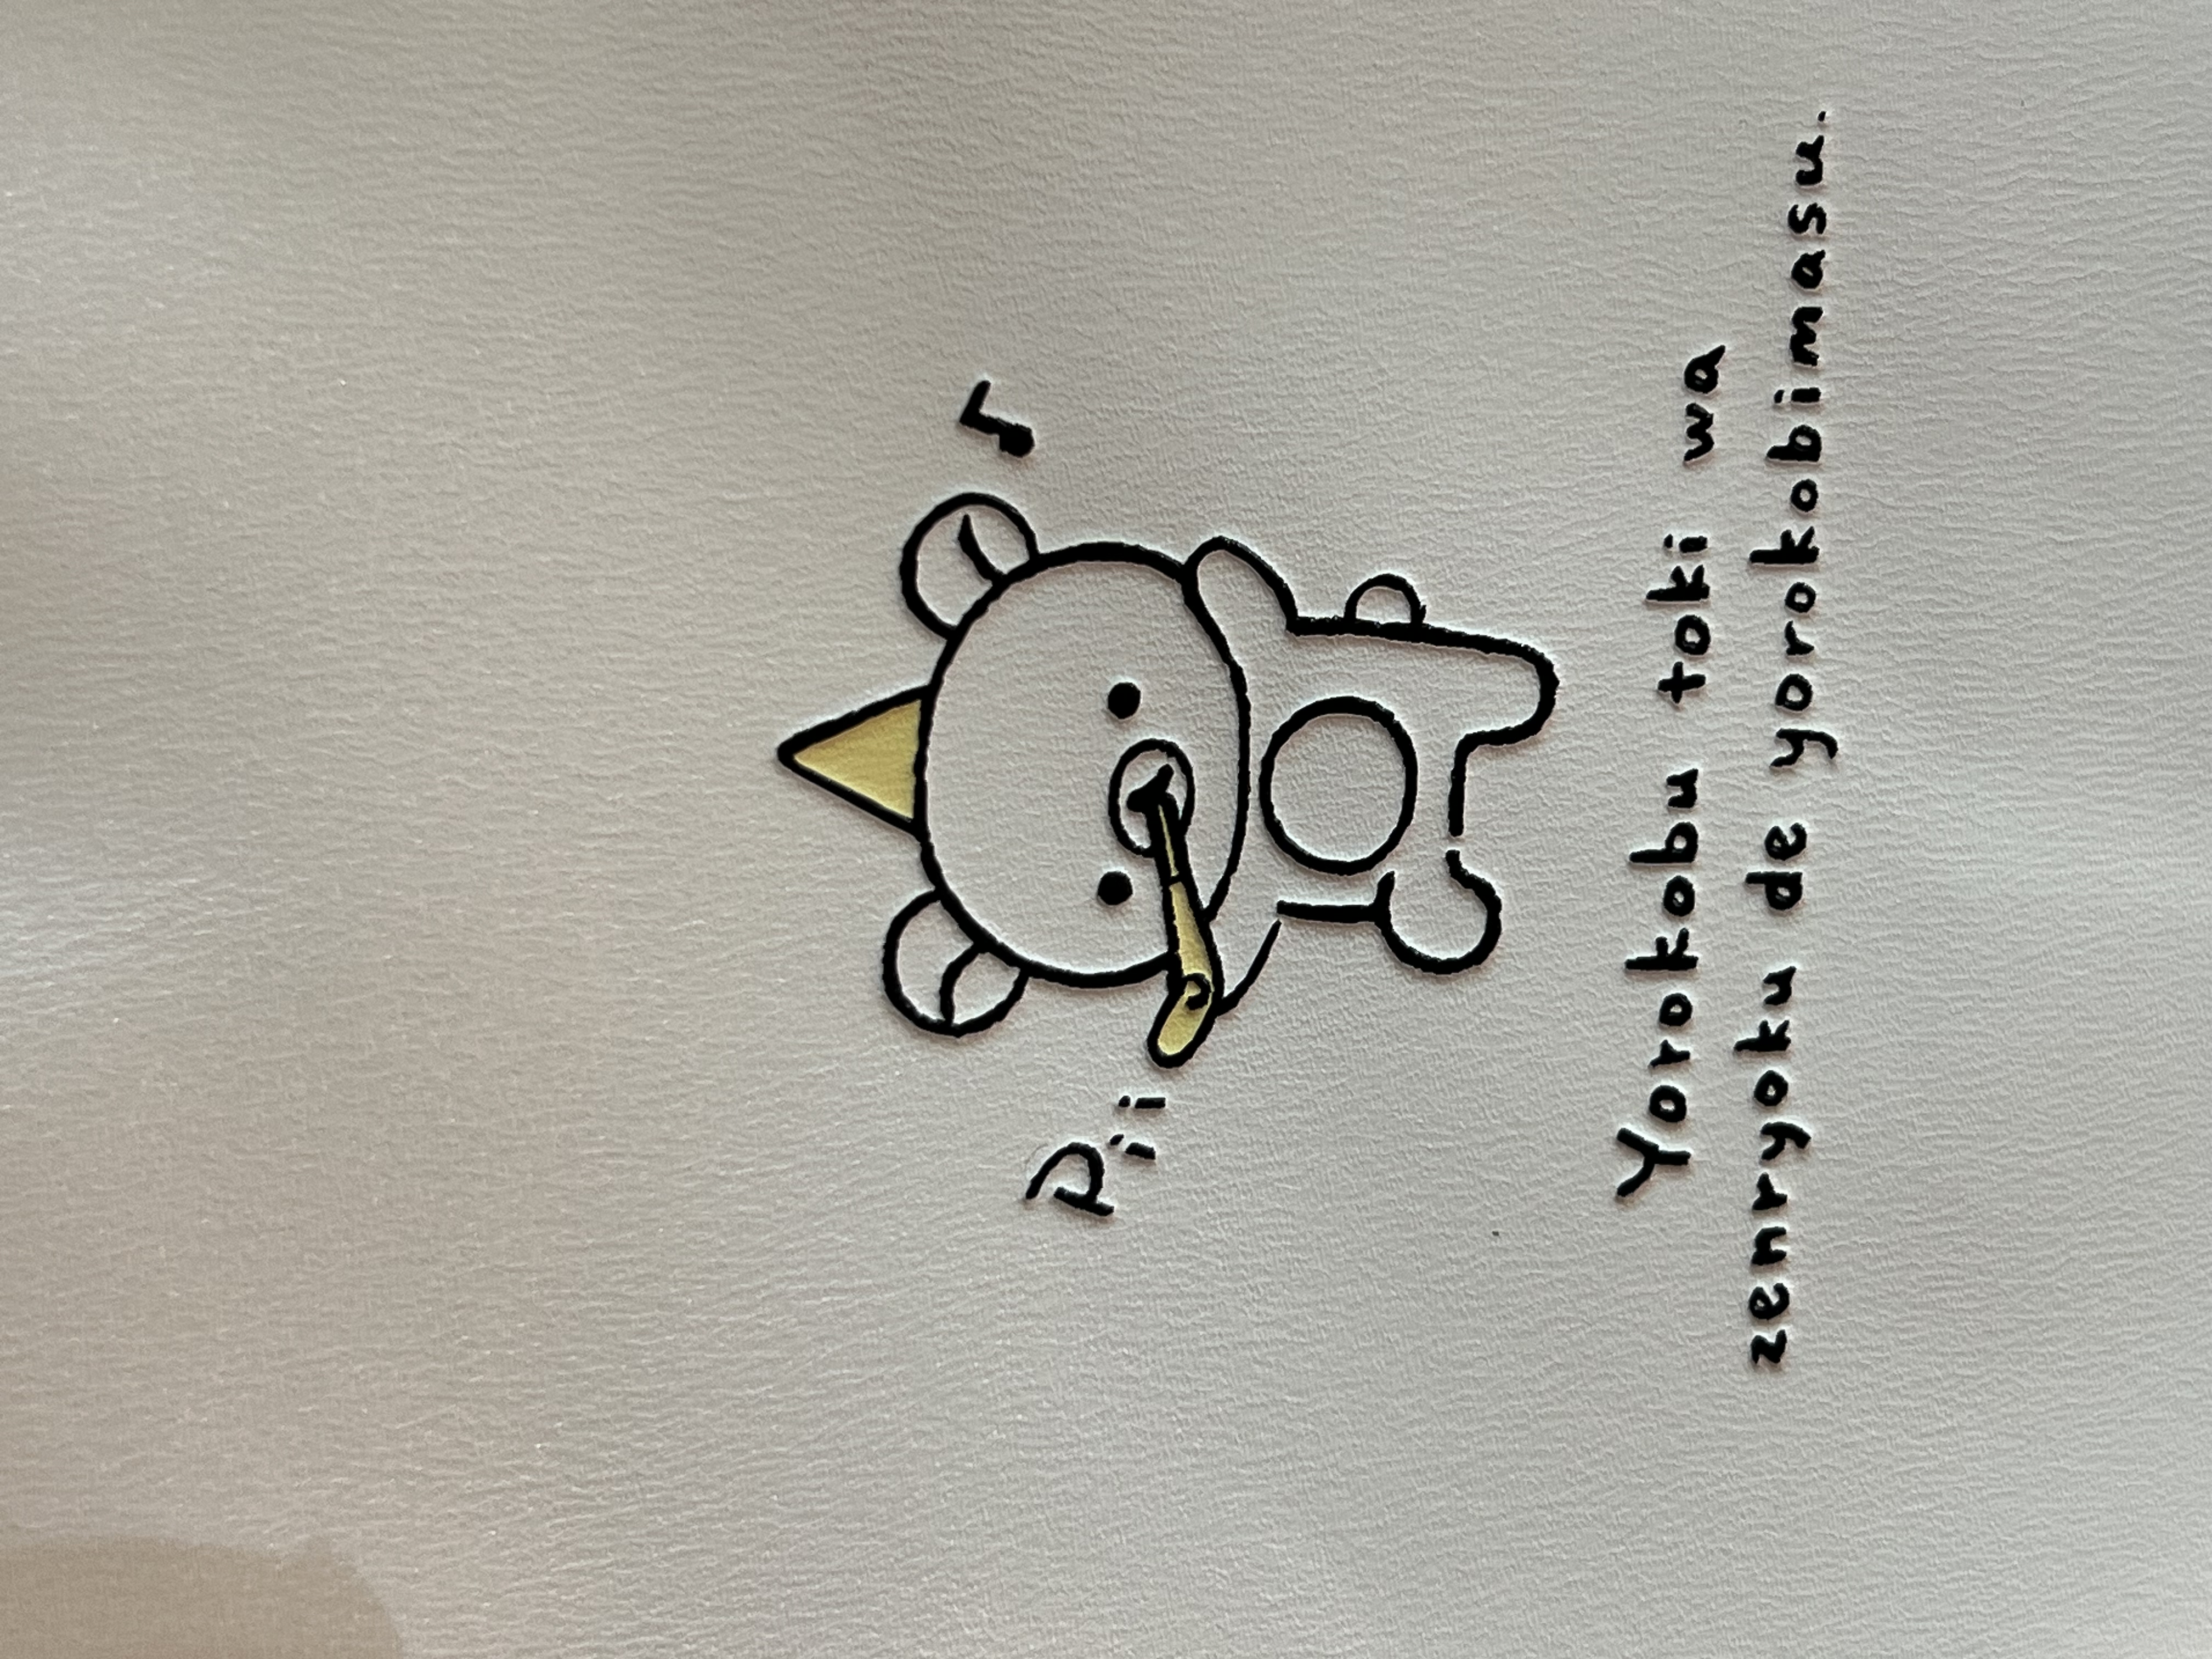 Pii
Yorokobu toki wa
zenryoku de yorokobimasu.